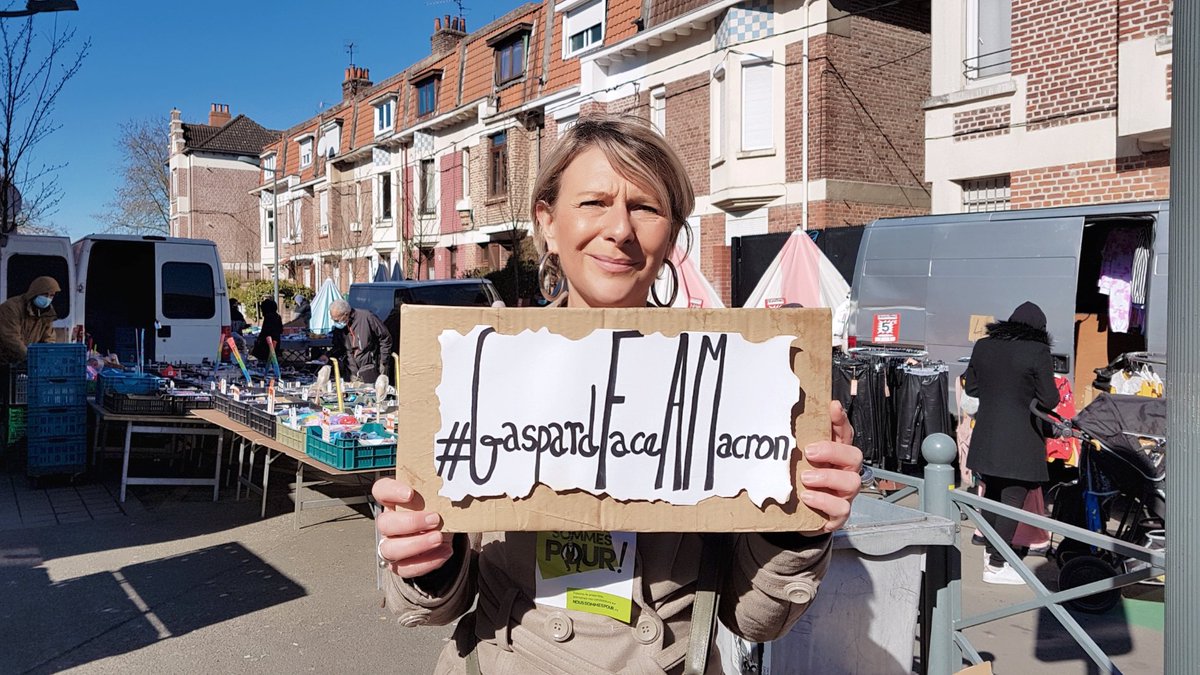 #GaspardFaceAMacron
SOMMES
POUR!
NOUSSOMMESPOUR
5